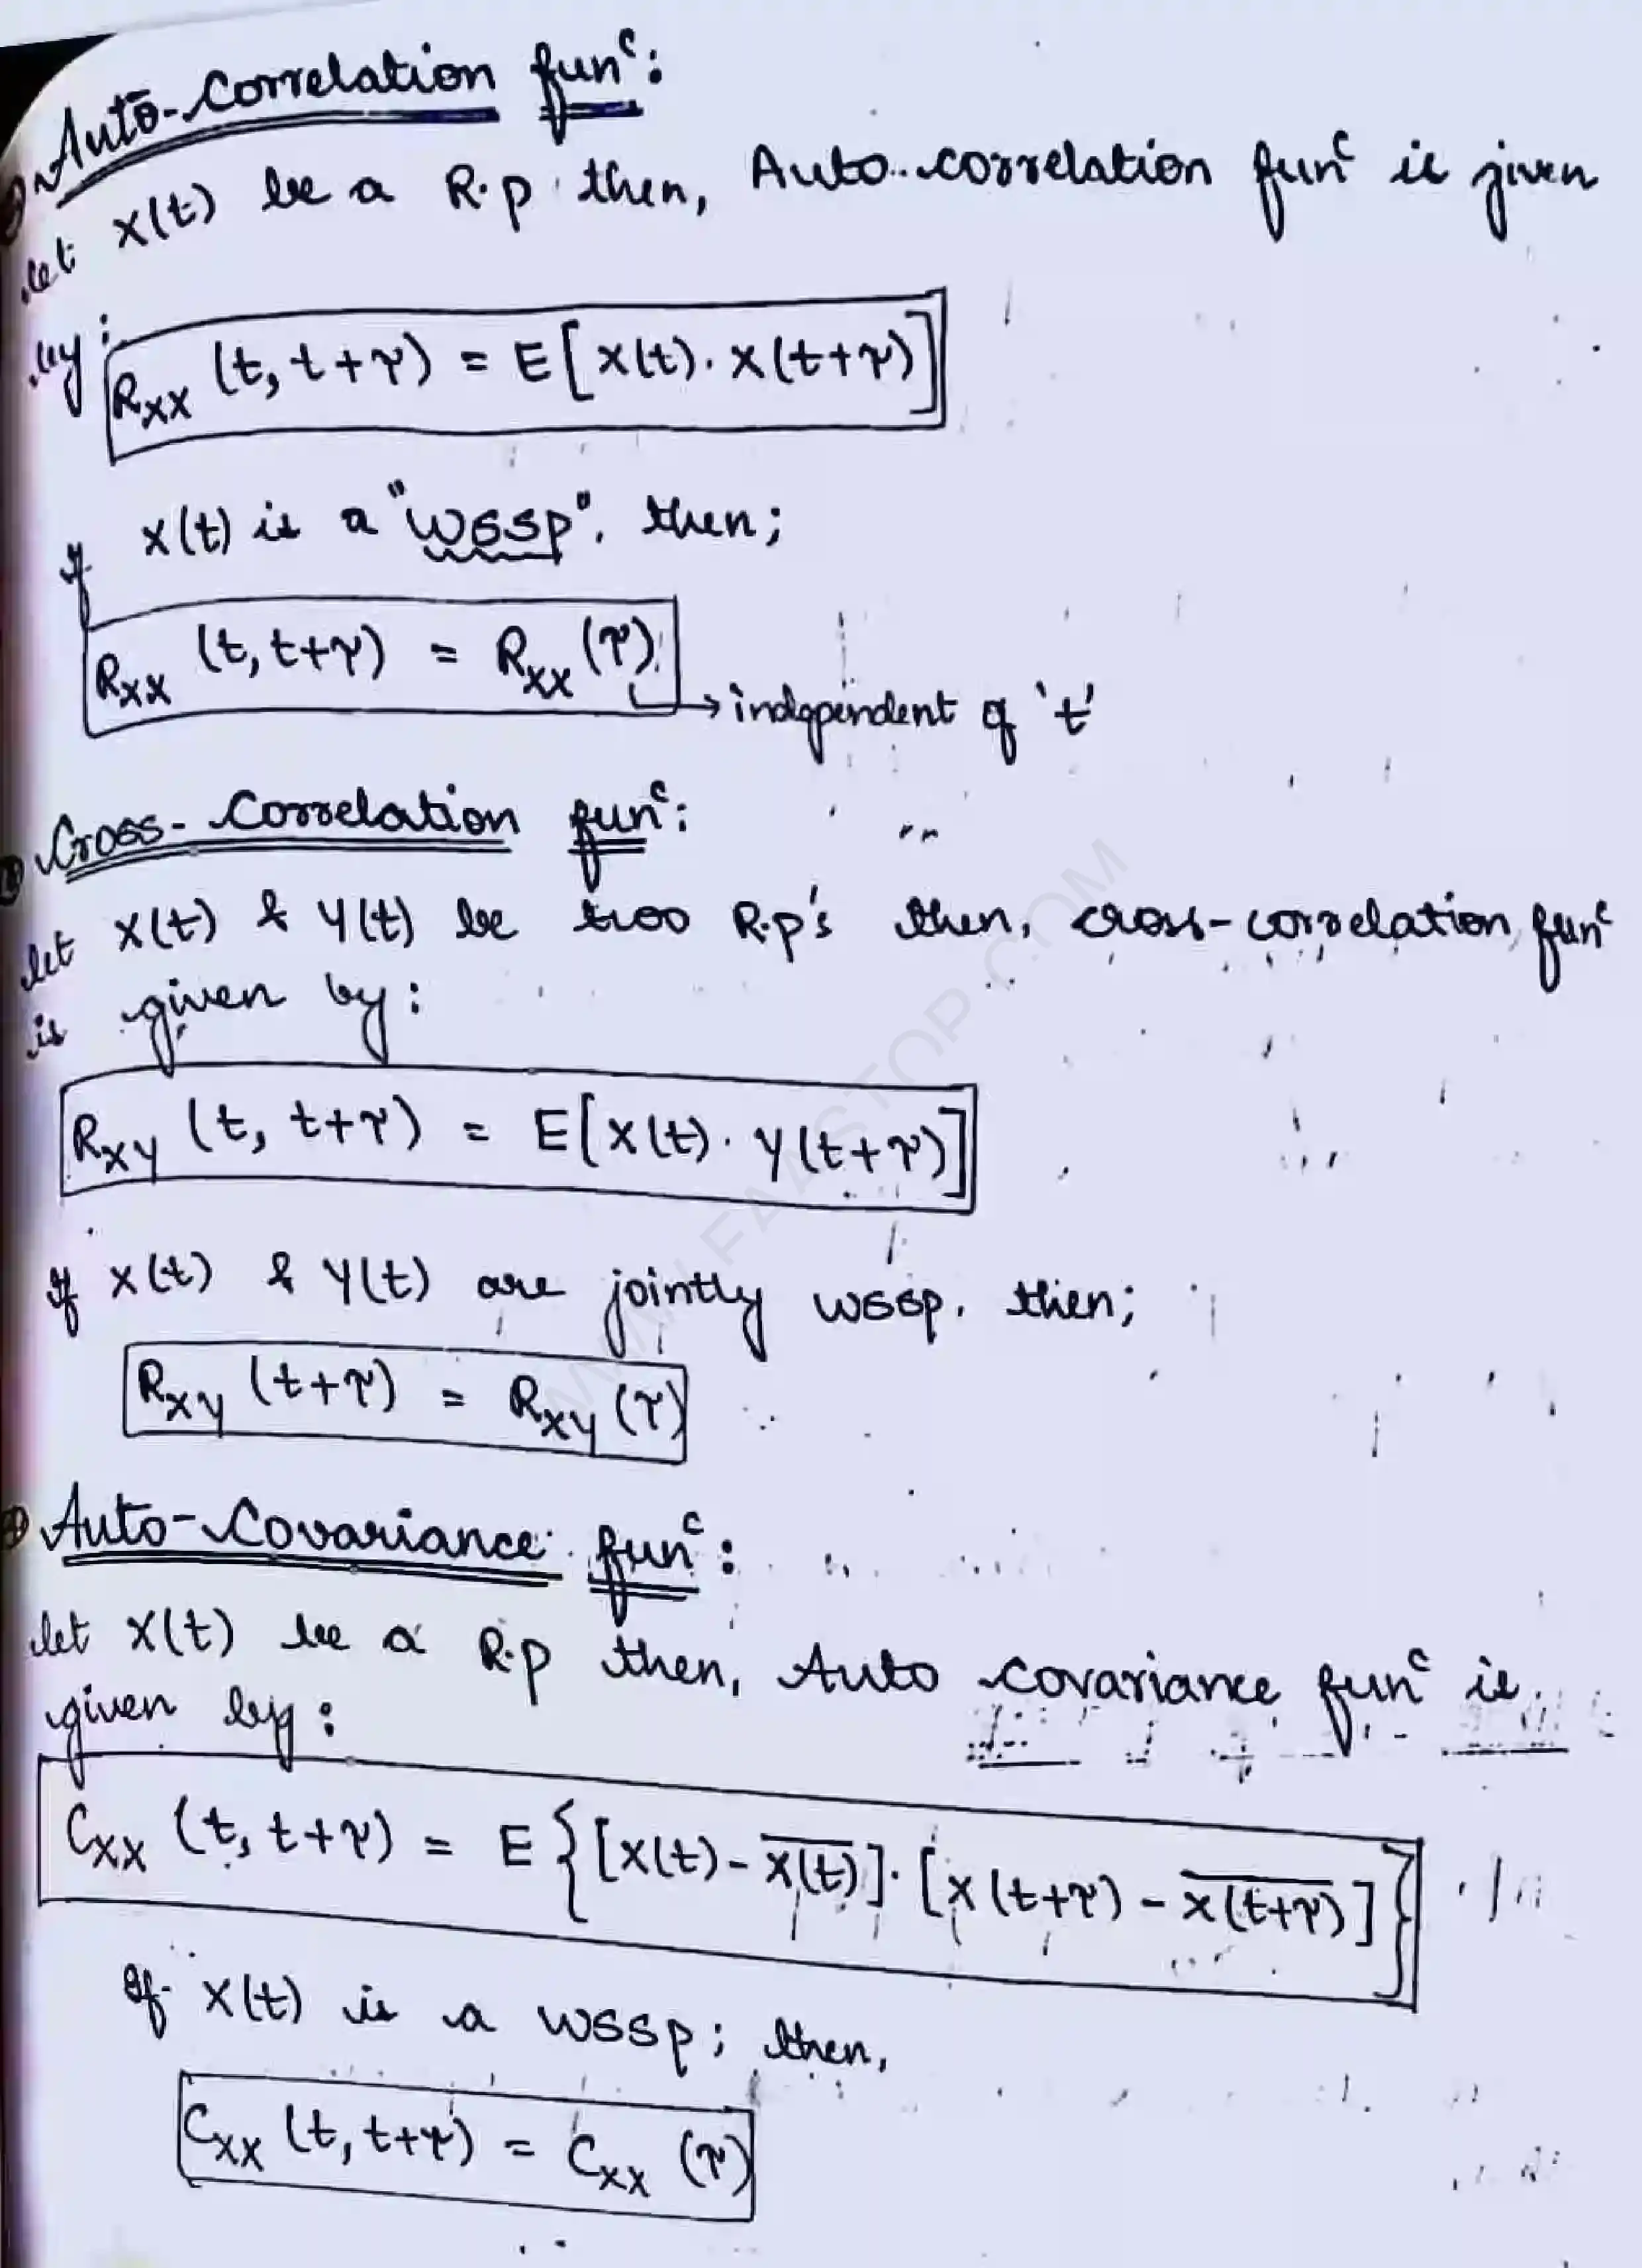 Auto-Correlation funᶜ:
let X(t) be a R.p then, Auto-correlation funᶜ is given
by:
R_XX (t, t+τ) = E[X(t). X(t+τ)]
if X(t) is a "WSSP". then;
R_XX (t, t+τ) = R_XX (τ)
→ independent of 't'
Cross-Correlation funᶜ:
let X(t) & Y(t) be two R.p's then, cross-correlation funᶜ
is given by:
R_XY (t, t+τ) = E[X(t). Y(t+τ)]
if X(t) & Y(t) are jointly WSSP. then;
R_XY (t+τ) = R_XY (τ)
Auto-Covariance funᶜ:
let X(t) be a R.p then, Auto covariance funᶜ is
given by:
C_XX (t, t+τ) = E{[X(t) - X̅(̅t̅)̅]. [X(t+τ) - X̅(̅t̅+̅τ̅)̅]}
If X(t) is a WSSP; then,
C_XX (t, t+τ) = C_XX (τ)
WWW.FAASTOP.COM